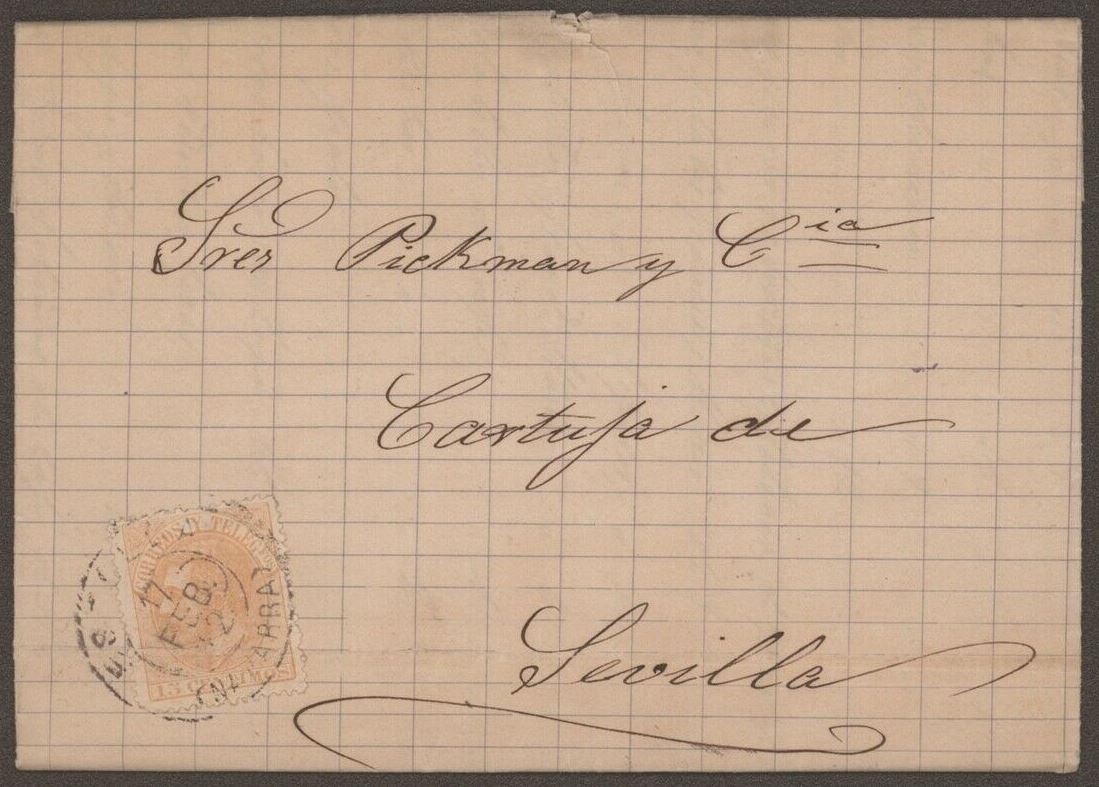 Sres Pickman y Cia
Cartuja de
Sevilla
CORREOS Y TELEGFOS
17
FEB
82
15 CENTIMOS